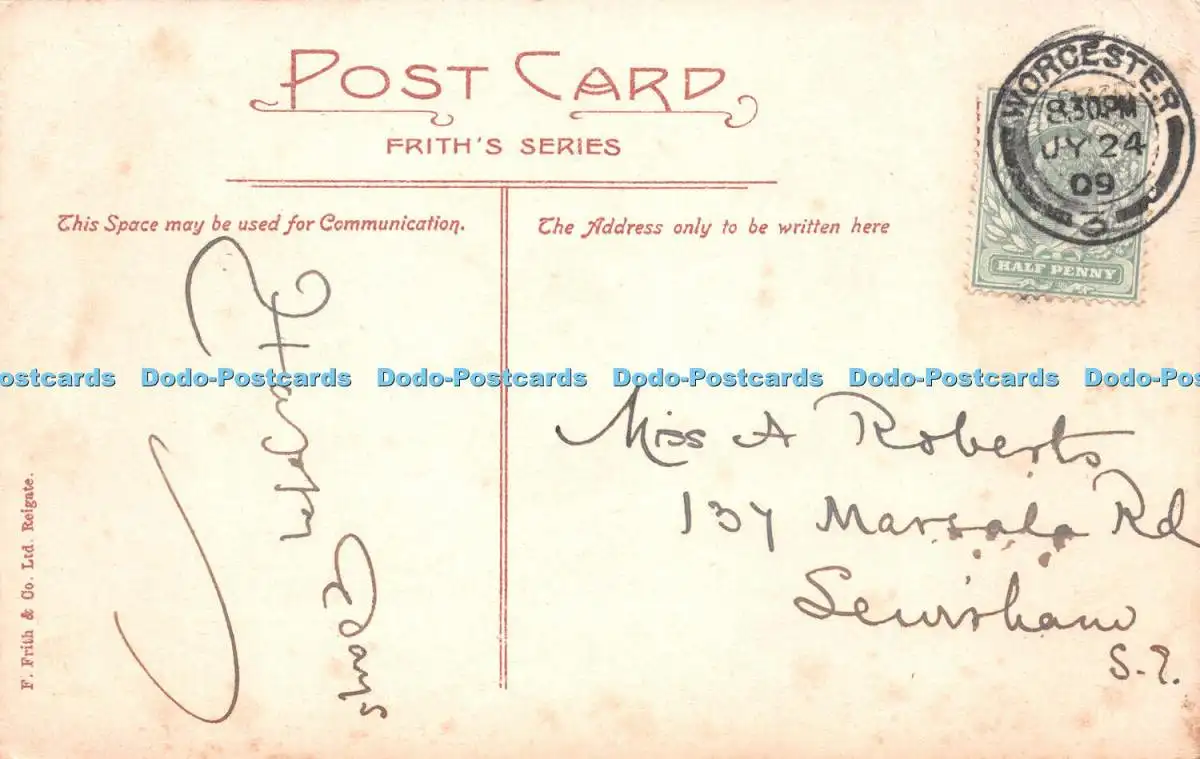 POST CARD
FRITH'S SERIES
This Space may be used for Communication.
The Address only to be written here
WORCESTER
8.30PM
JY 24
09
3
HALF PENNY
ostcards Dodo-Postcards Dodo-Postcards Dodo-Postcards Dodo-Postcards Dodo-Po
Miss A Roberts
137 Marsala Rd
Lewisham
S.E.
F. Frith & Co. Ltd. Reigate.